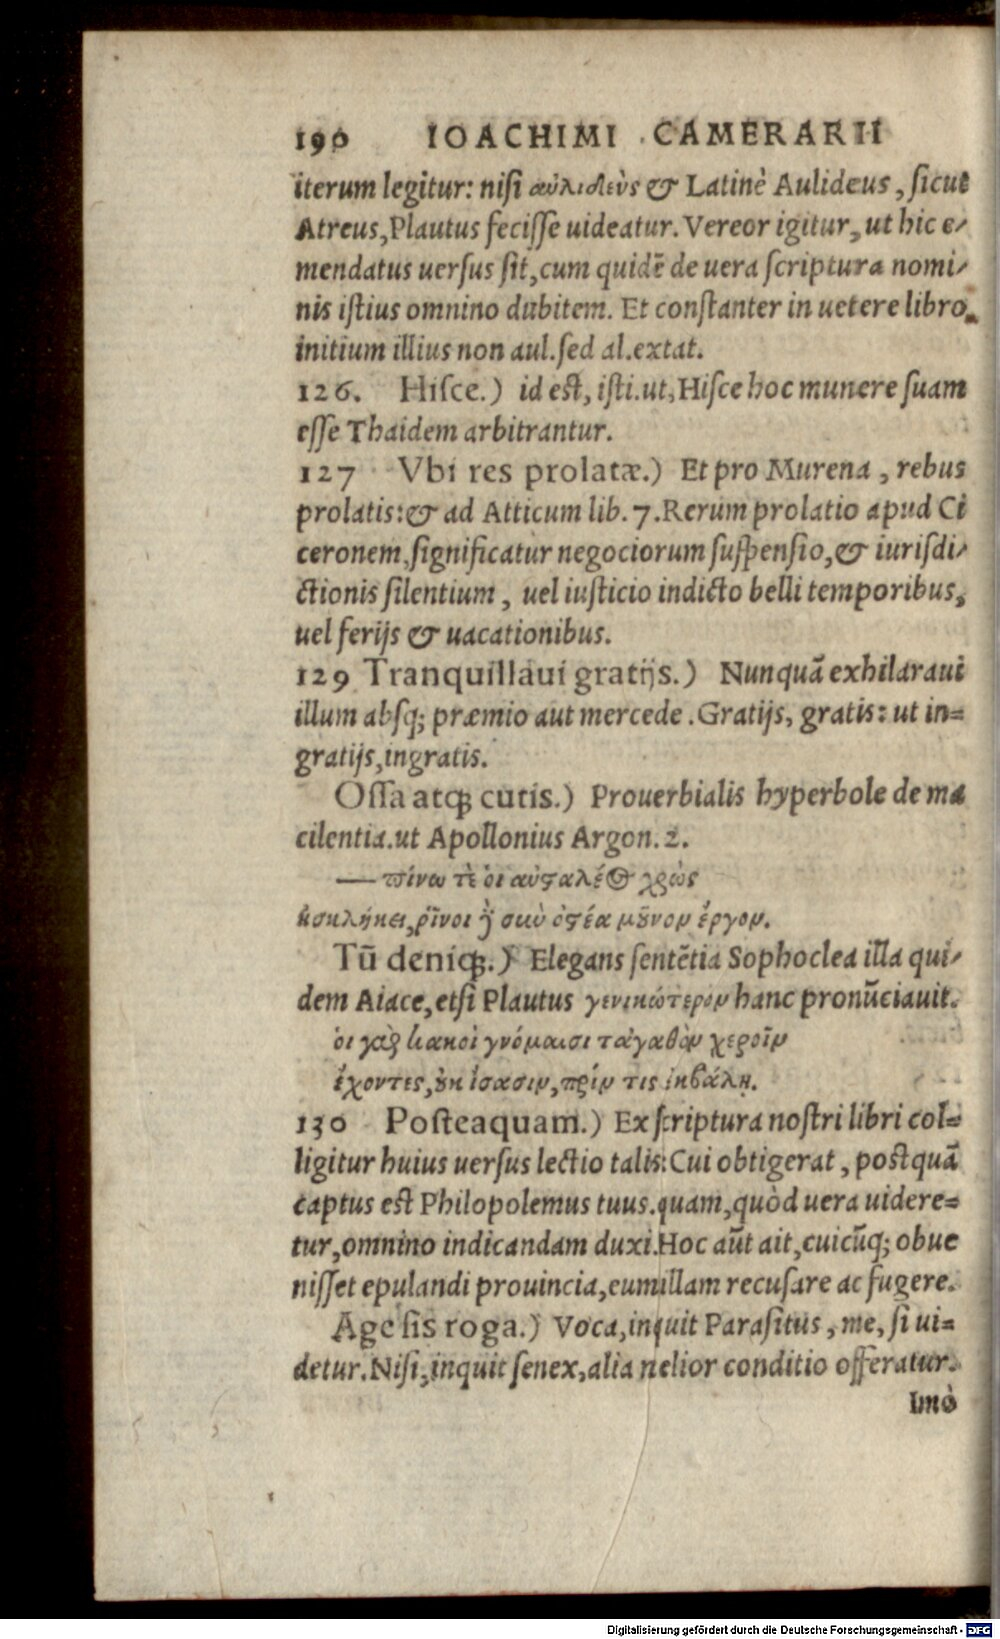 190 IOACHIMI CAMERARII
iterum legitur: nisi αὐλιδεὺς & Latinè Aulideus, sicut
Atreus, Plautus fecisse uideatur. Vereor igitur, ut hic e/
mendatus uersus sit, cum quidẽ de uera scriptura nomi/
nis istius omnino dubitem. Et constanter in uetere libro
initium illius non aul. sed al. extat.
126. Hisce.) id est, isti. ut, Hisce hoc munere suam
esse Thaidem arbitrantur.
127 Vbi res prolatæ.) Et pro Murena, rebus
prolatis: & ad Atticum lib. 7. Rerum prolatio apud Ci
ceronem, significatur negociorum suspensio, & iurisdi/
ctionis silentium, uel iusticio indicto belli temporibus,
uel ferijs & uacationibus.
129 Tranquillaui gratijs.) Nunquã exhilaraui
illum absq; præmio aut mercede. Gratijs, gratis: ut in=
gratijs, ingratis.
Ossa atq; cutis.) Prouerbialis hyperbole de ma
cilentia. ut Apollonius Argon. 2.
— πίνω τέ οἱ αὐσταλέος χρὼς
ἐσκλήκει, ῥῖνοι δὲ σὺν ὀστέα μοῦνον ἔεργον.
Tũ deniq;.) Elegans sentẽtia Sophoclea illa qui/
dem Aiace, etsi Plautus γενικώτερον hanc pronũciauit.
οἱ γὰρ κακοὶ γνώμαισι τἀγαθὸν χεροῖν
ἔχοντες, οὐκ ἴσασιν, πρίν τις ἐκβάλῃ.
130 Posteaquam.) Ex scriptura nostri libri col=
ligitur huius uersus lectio talis: Cui obtigerat, postquã
captus est Philopolemus tuus. quam, quòd uera uidere=
tur, omnino indicandam duxi. Hoc aũt ait, cuicũq; obue
nisset epulandi prouincia, eum illam recusare ac fugere.
Age sis roga.) Voca, inquit Parasitus, me, si ui=
detur. Nisi, inquit senex, alia melior conditio offeratur.
Imò
Digitalisierung gefördert durch die Deutsche Forschungsgemeinschaft - DFG